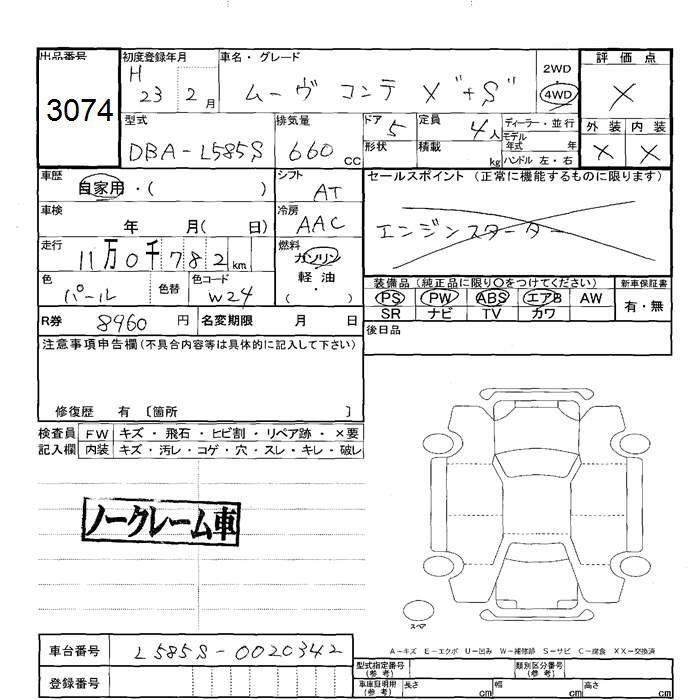 出品番号 初度登録年月 車名・グレード 評価点
3074 H 23 2月 ムーヴ コンテ X "+S" 2WD 4WD X
型式 排気量 ドア 5 定員 4人 ディーラー・並行 外装 内装
DBA-L585S 660cc 形状 積載 kg モデル年式 年 ハンドル 左・右 X X
車歴 自家用・( ) シフト AT セールスポイント (正常に機能するものに限ります)
車検 年 月( 日) 冷房 AAC エンジンスターター
走行 11万0千782km 燃料 ガソリン
軽油
( )
色 パール 色替 色コード W24 装備品 (純正品に限り○をつけてください) 新車保証書
PS PW ABS エアB AW 有・無
SR ナビ TV カワ
R券 8960円 名変期限 月 日 後日品
注意事項申告欄(不具合内容等は具体的に記入して下さい)
修復歴 有 〔箇所 〕
検査員 FW キズ・飛石・ヒビ割・リペア跡・×要
記入欄 内装 キズ・汚レ・コゲ・穴・スレ・キレ・破レ
ノークレーム車
スペア
A-キズ E-エクボ U-凹み W-補修跡 S-サビ C-腐食 XX-交換済
車台番号 L585S-0020342 型式指定番号(参考) 類別区分番号(参考)
登録番号 車庫証明用(参考) 長さ cm 幅 cm 高さ cm